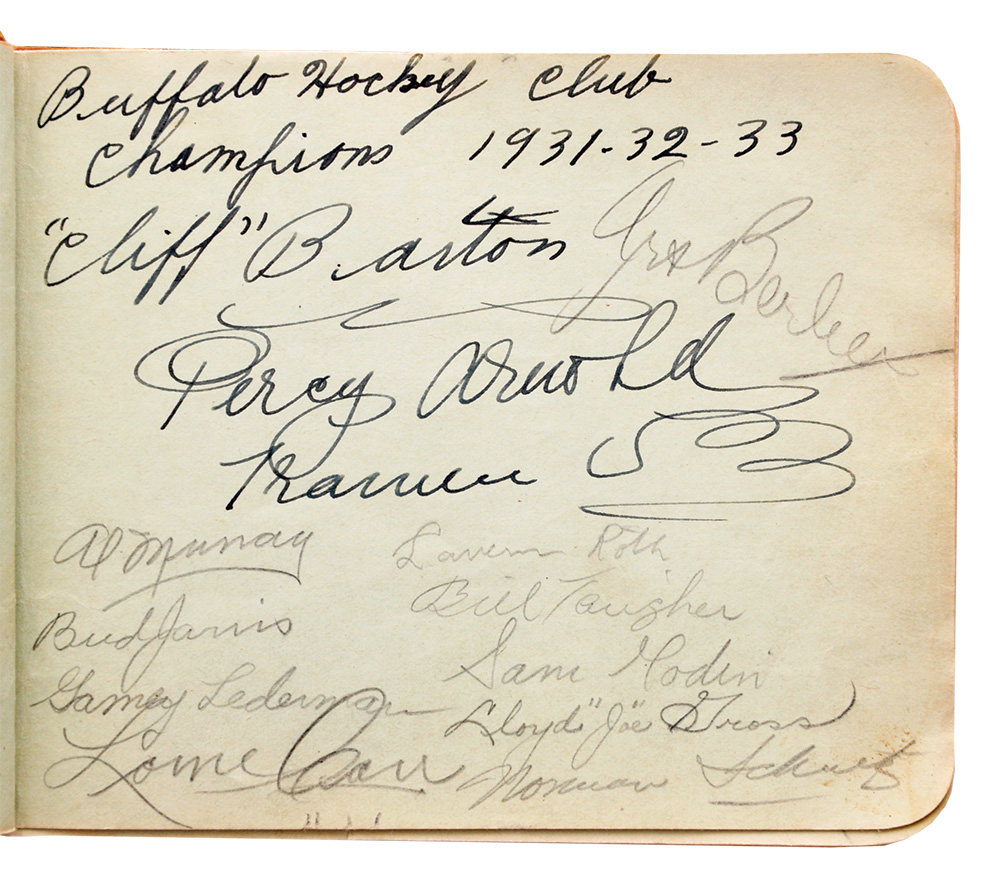 Buffalo Hockey Club
Champions 1931-32-33
"Cliff" Barton
Percy Arnold
Trainer
Al Murray
Lavern Roth
Bud Jarvis
Bill Taugher
Sam Godin
Gamey Lederman
"Lloyd" "Joe" Gross
Lorne Carr
Norman Schultz